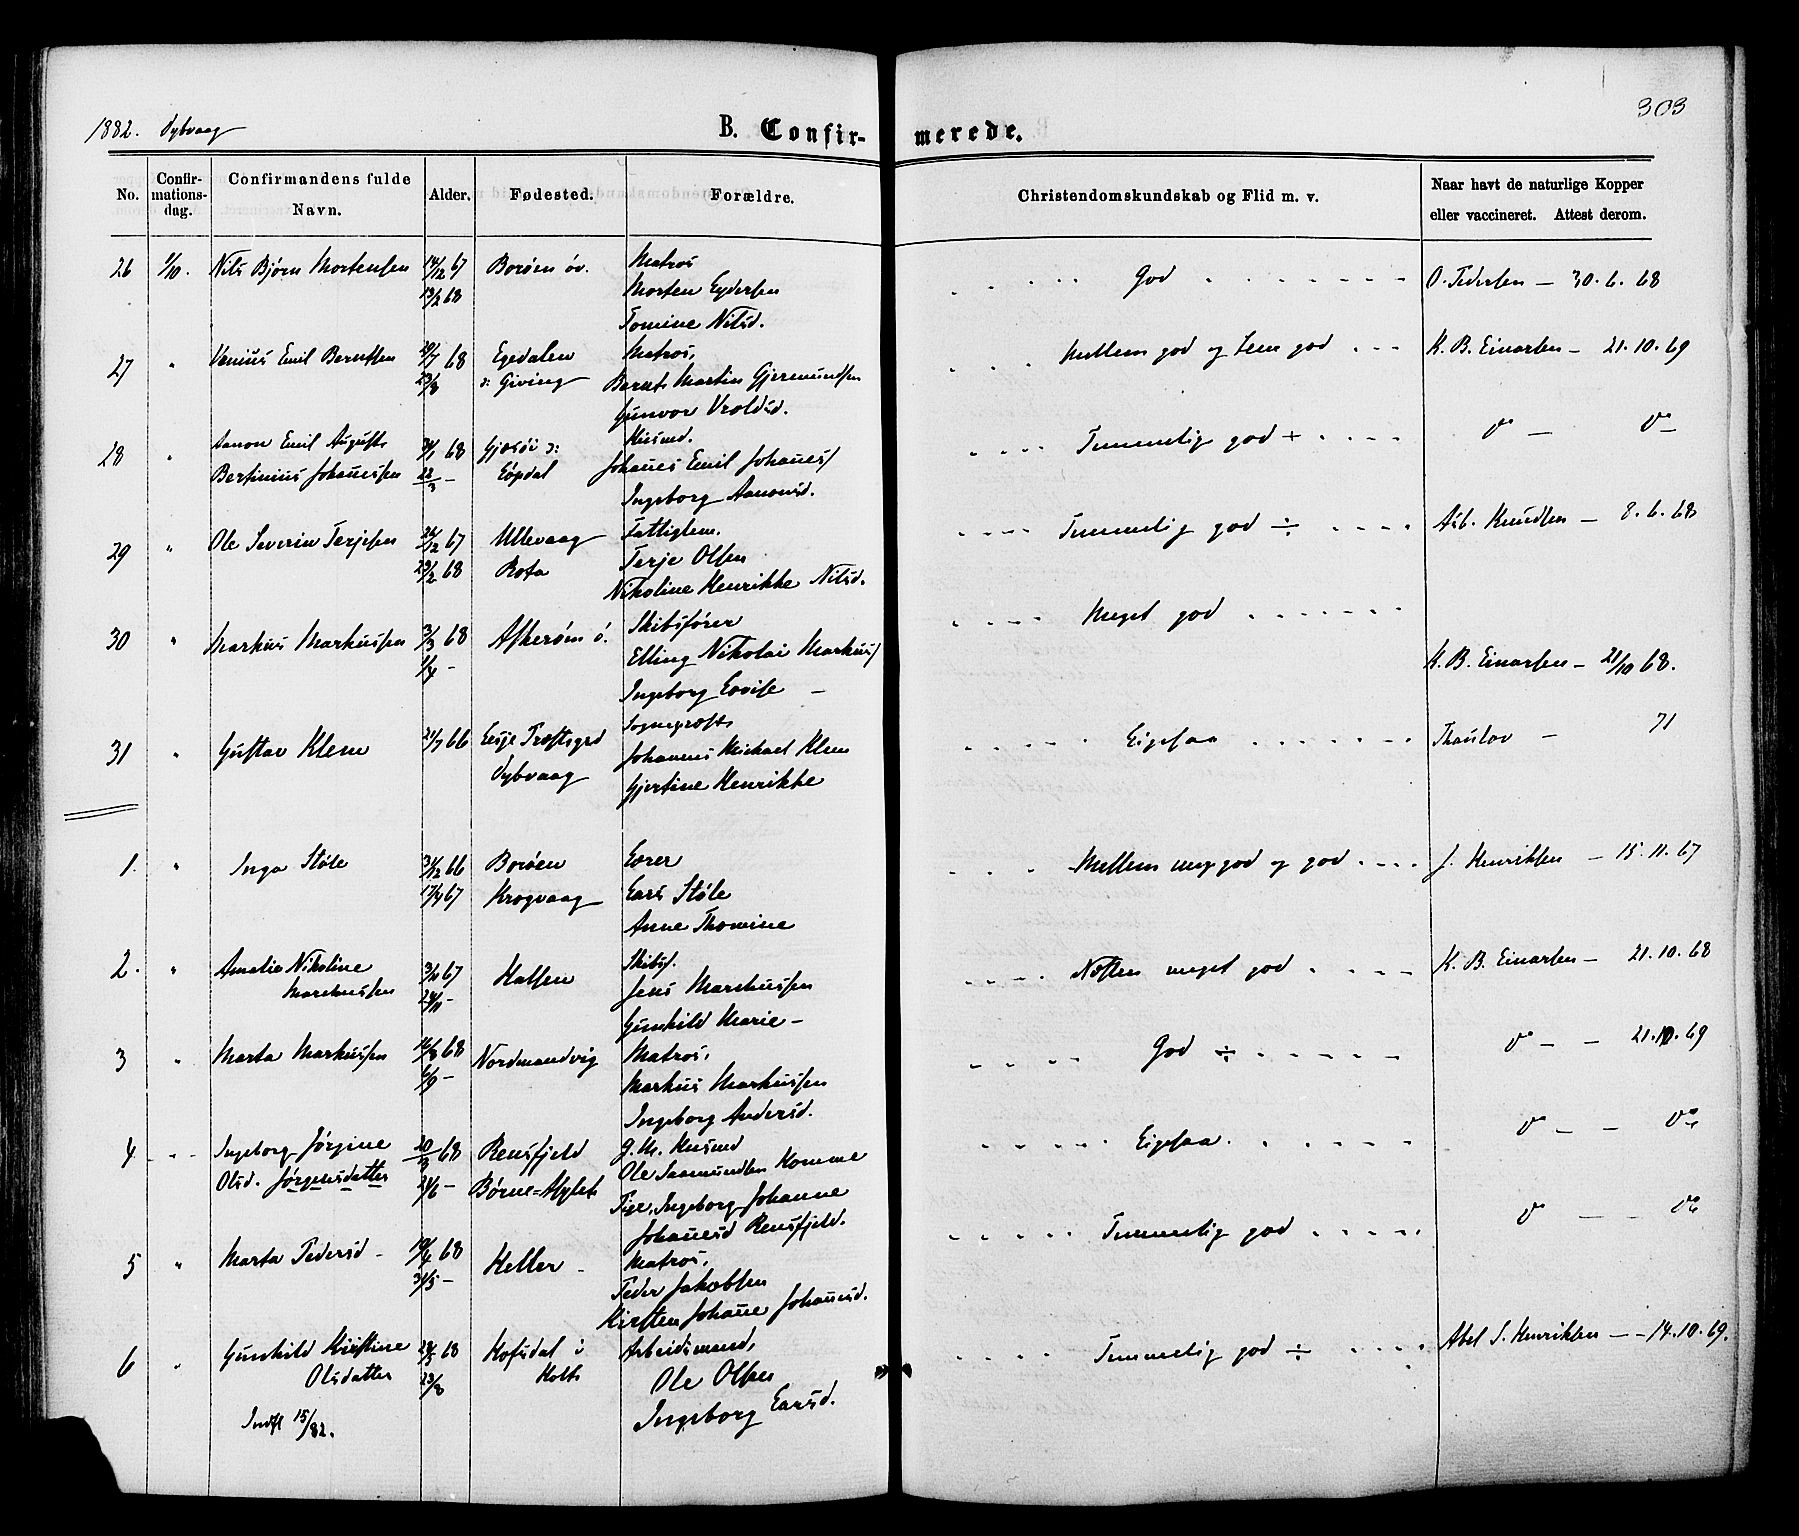 1882. Dybvaag
B. Confirmerede.
303
No.
Confirmationsdag.
Confirmandens fulde Navn.
Alder.
Fødested.
Forældre.
Christendomskundskab og Flid m. v.
Naar havt de naturlige Kopper eller vaccineret. Attest derom.
26 1/10. Nils Bjørn Mortensen 14/12 67 Borøen øv. Matros God O. Pedersen — 30.6.68
13/2 68 Morten Eydersen
Tomine Nilsd.
27 " Venius Emil Berntsen 20/7 68 Egedalen Matros, Mellem god og tem god K. B. Einarsen — 21.10.69
23/8 Giving Bernt Martin Gjermundsen
Gunvor Vroldsd.
28 " Aanon Emil August 68 Husmd. Temmelig god ÷
Bertinius Johannessen 22/3 — Johannes Emil Johannes/
Ingeborg Aanonsd.
29 " Ole Severin Terjesen 26/12 67 Ullevaag Fattiglem. Temmelig god ÷ Asb. Knudsen — 8.6.68
23/2 68 Rota Terje Olsen
Nikoline Henrikke Nilsd.
30 " Markus Markussen 3/3 68 Askerøen ø. Skibsfører Meget god
1/4 — Elling Nikolai Markus/ K. B. Einarsen — 21/10 68.
Ingeborg Lovise —
31 " Gustav Klem 21/7 66 Lesje Præstgrd Sogneprest Eigesaa Thaulov — 71
Dybvaag Johannes Michael Klem
Gjertine Henrikke
1. " Inga Støle 31/12 66 Borøen Lærer Mellem meg god og god J. Henriksen — 15.11.67
17/4 67 Krogvaag Lars Støle
Anne Thomine
2. " Amalie Nikoline 67 Halsen Skibsf. Næsten meget god K. B. Einarsen — 21.10.68
Marchussen 24/11 — Jens Marchussen
Gunhild Marie —
3 " Marta Markussen 16/8 68 Nordmandvig Matros, God ÷ 21.10.69
6/9 — Markus Markussen
Ingeborg Andersd.
4 Ingeborg Jørgine 20/3 68 Rensfjeld G. M. Husmd Eigesaa.
Olsd. Jørgensdatter 24/6 — Ole Saamundsen Homme
Pige, Ingeborg Johanne
Johannesd Rensfjeld.
5 " Marta Pedersd — 19/4 68 Heller — Matros, Temmelig god
31/5 — Peder Jakobsen
Kirsten Johanne Johannesd.
6 " Gunhild Kristine 24/5 68 Hofsdal i Arbeidsmand, Temmelig god ÷ Abel S. Henriksen — 14.10.69.
Olsdatter 23/8 Holt Ole Olsen
Ingeborg Larsd.
Indfl 15/82.